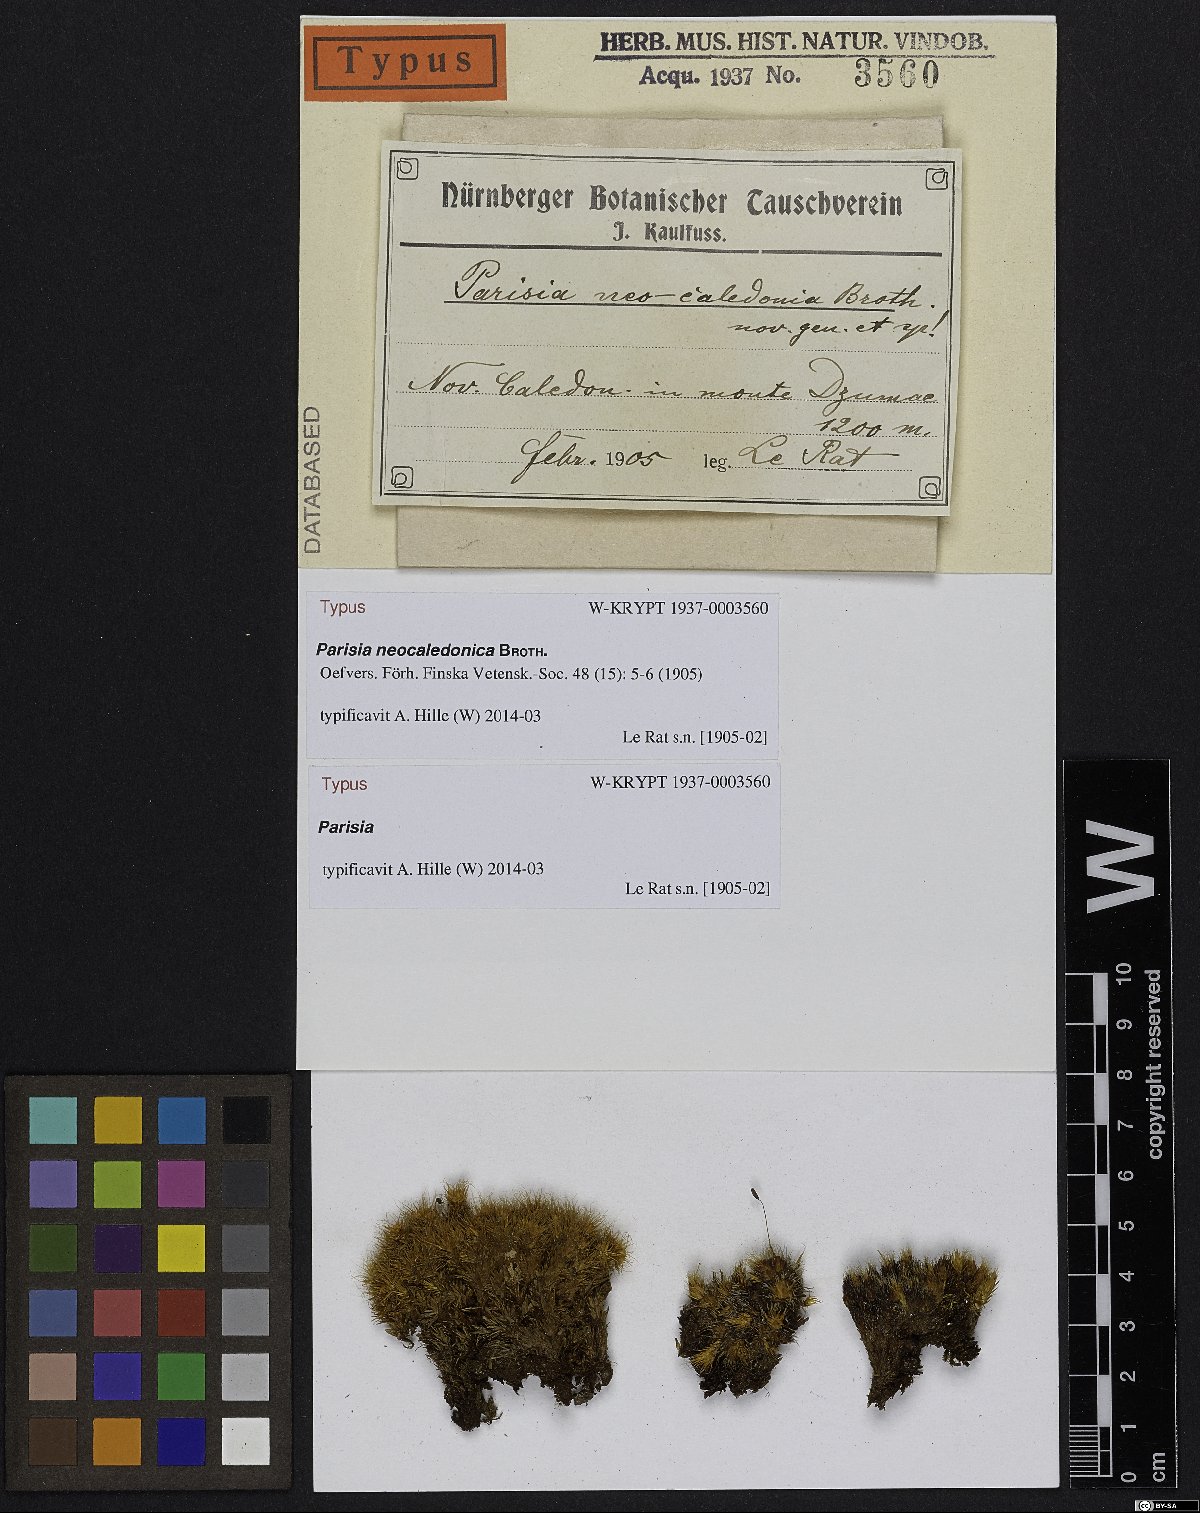 Typus
HERB. MUS. HIST. NATUR. VINDOB.
Acqu. 1937 No. 3560
Nürnberger Botanischer Tauschverein
J. Kaulfuss.
Parisia neo-caledonia Broth.
nov. gen. et sp!
Nov. Caledon. in monte Dzumac
1200 m.
febr. 1905 leg. Le Rat
DATABASED
Typus W-KRYPT 1937-0003560
Parisia neocaledonica BROTH.
Oefvers. Förh. Finska Vetensk.-Soc. 48 (15): 5-6 (1905)
typificavit A. Hille (W) 2014-03
Le Rat s.n. [1905-02]
Typus W-KRYPT 1937-0003560
Parisia
typificavit A. Hille (W) 2014-03
Le Rat s.n. [1905-02]
W
copyright reserved
10
9
8
7
6
5
4
3
2
1
0
cm
cc BY-SA